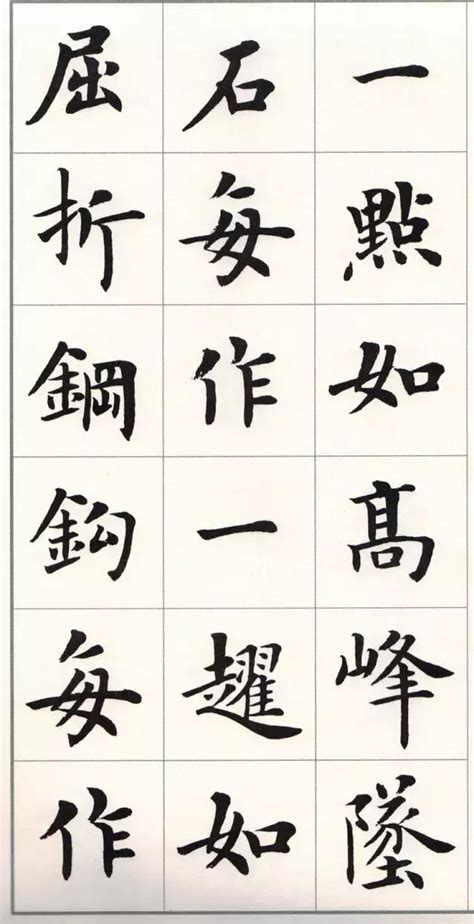 一點如髙峰墜
石每作一趯如
屈折鋼鈎每作